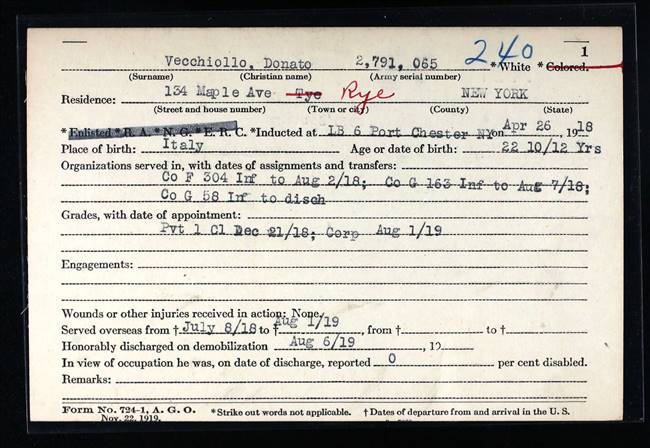 240 1
Vecchiollo, Donato 2,791,065 *White *Colored.
(Surname) (Christian name) (Army serial number)
Residence: 134 Maple Ave Tye Rye NEW YORK
(Street and house number) (Town or city) (County) (State)
*Enlisted *R. A. *N. G. *E. R. C. *Inducted at LB 6 Port Chester NY on Apr 26, 1918
Place of birth: Italy Age or date of birth: 22 10/12 Yrs
Organizations served in, with dates of assignments and transfers:
Co F 304 Inf to Aug 2/18; Co G 163 Inf to Aug 7/18;
Co G 58 Inf to disch
Grades, with date of appointment:
Pvt 1 Cl Dec 21/18; Corp Aug 1/19
Engagements:
Wounds or other injuries received in action: None.
Served overseas from † July 8/18 to † Aug 1/19, from † to †
Honorably discharged on demobilization Aug 6/19, 19
In view of occupation he was, on date of discharge, reported 0 per cent disabled.
Remarks:
Form No. 724-1, A. G. O. *Strike out words not applicable. †Dates of departure from and arrival in the U. S.
Nov. 22, 1919.